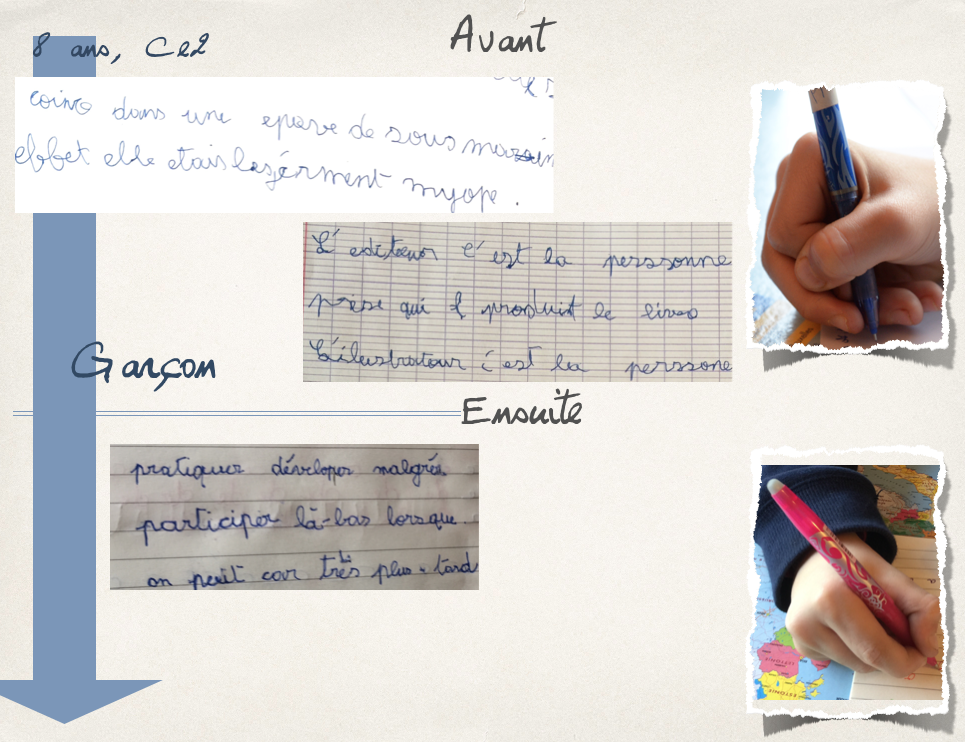 8 ans, Ce2
Avant
coincé dans une epave de sous marin
effet elle etais legérment myope.
L'editeur c'est la perssonne
qui produit le livre
L'ilustrateur c'est la persone
Garçon
Ensuite
pratiquer développer malgrés
participer là-bas lorsque
on peut car très plus tard
ESTONIA